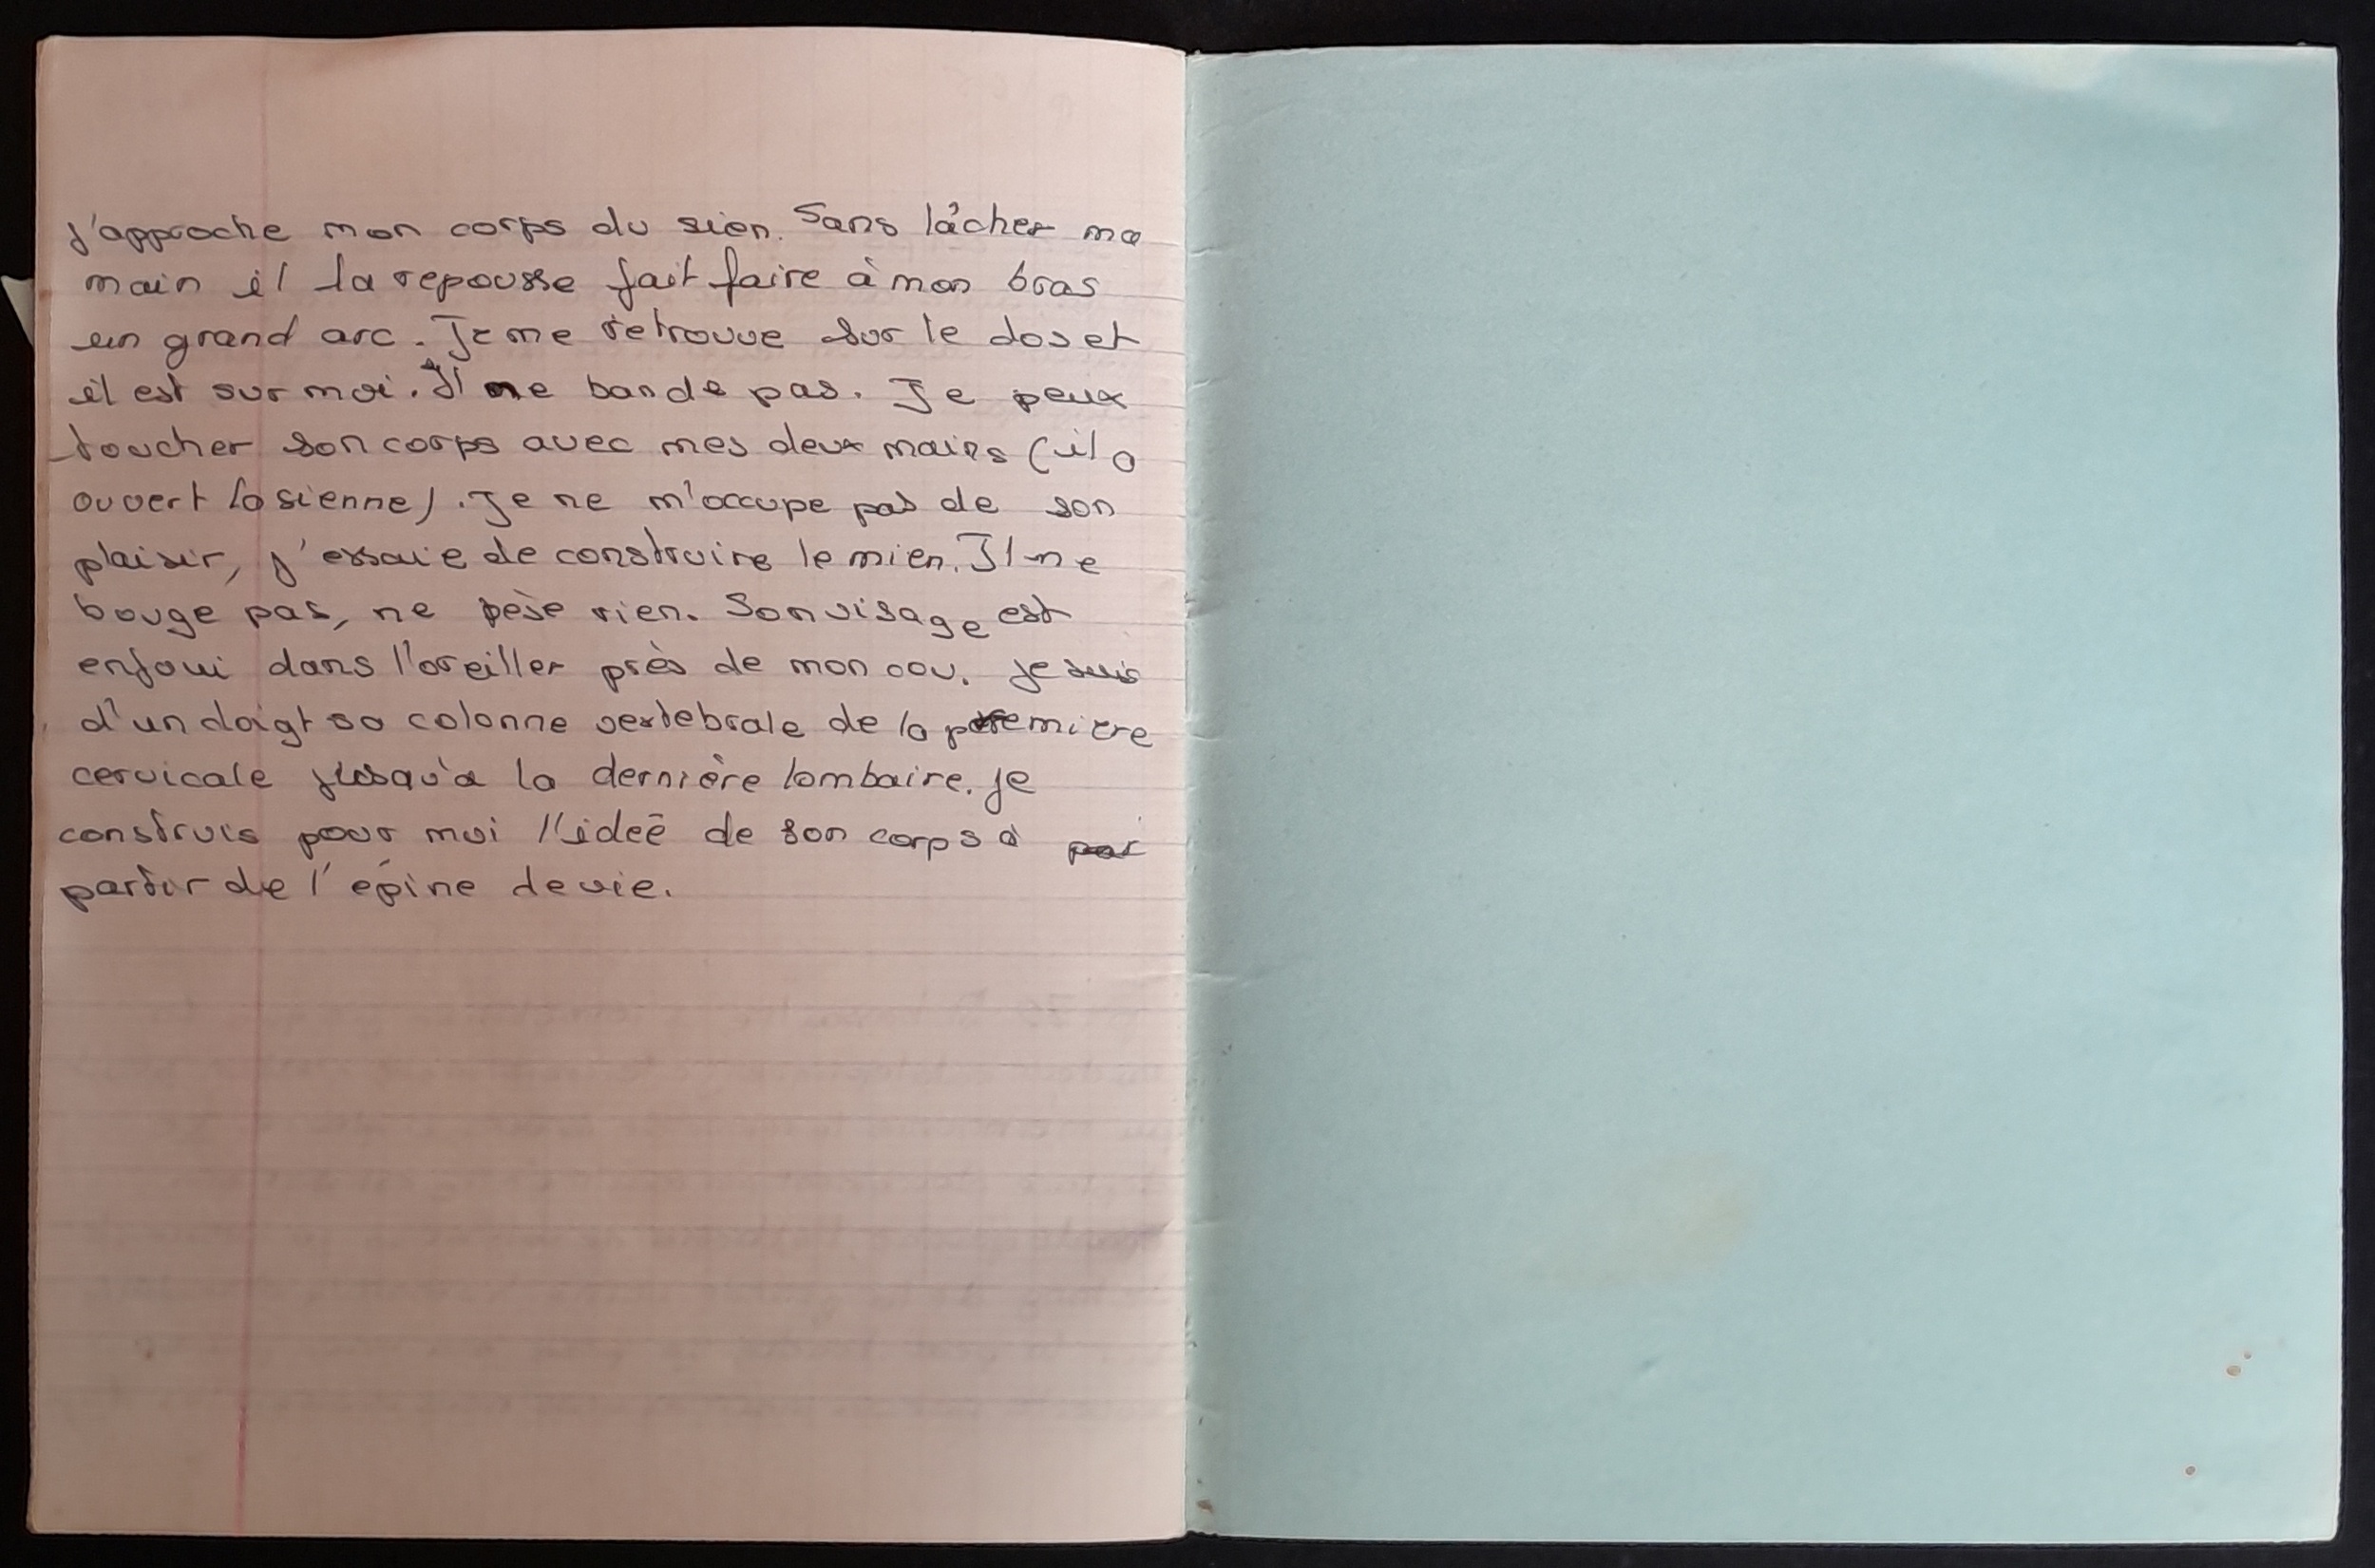 j'approche mon corps du sien. Sans lâcher ma
main il la repousse fait faire à mon bras
un grand arc. Je me retrouve sur le dos et
il est sur moi. Il ne bande pas. Je peux
toucher son corps avec mes deux mains (il a
ouvert la sienne). Je ne m'occupe pas de son
plaisir, j'essaie de construire le mien. Il ne
bouge pas, ne pèse rien. Son visage est
enfoui dans l'oreiller près de mon cou. je suis
d'un doigt sa colonne vertebrale de la premiere
cervicale jusqu'a la dernière lombaire. je
construis pour moi l'ideé de son corps à par
partir de l'épine de vie.